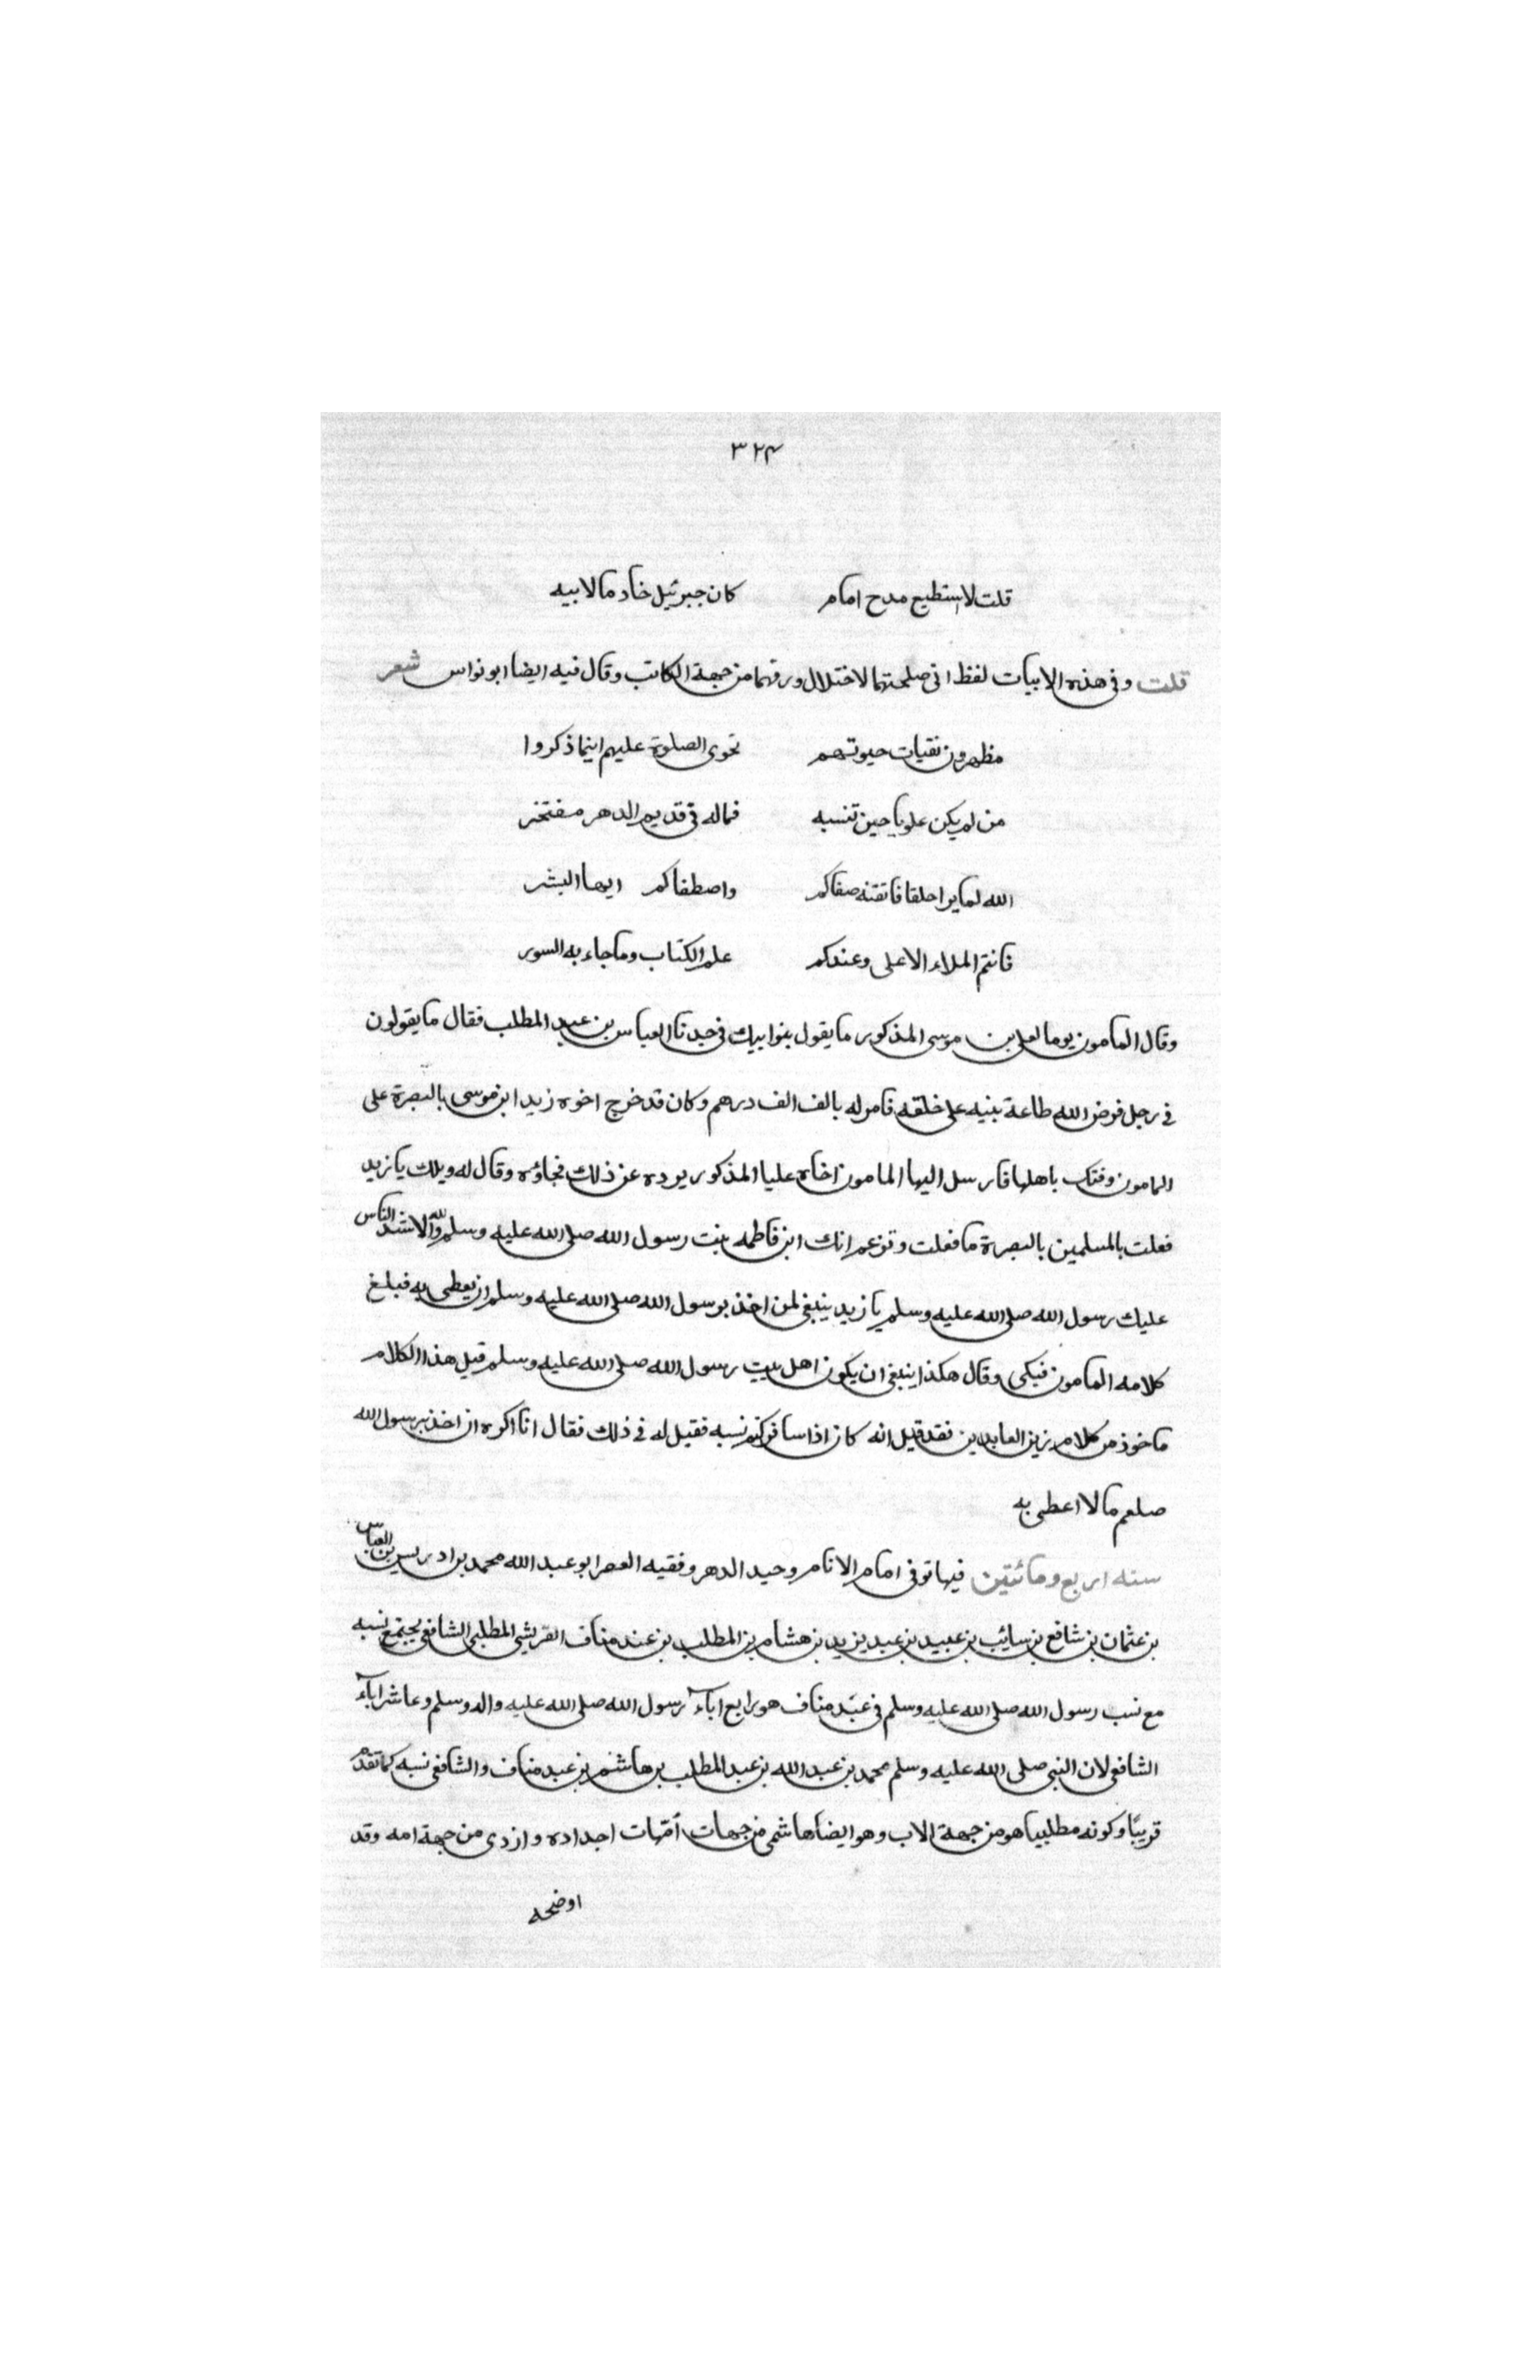 ٣٢٤
قلت لا استطيع مدح امام كان جبرئيل خادما لابيه
قلت وفي هذه الابيات لفظ اتى صلحتها لاختلال ورقتها من جهة الكاتب وقال فيه ايضا ابو نواس شعر
مظهرون نقيات حيوتهم تحوى الصلوة عليهم اينما ذكروا
من لم يكن علويا حين تنسبه فماله في قديم الدهر مفتخر
الله لما برا خلقا فاتقنه صفاكم واصطفاكم ايها البشر
فانتم الملاء الاعلى وعندكم علم الكتاب وما جاء به السور
وقال المامون يوما لعلي بن موسى المذكور ما يقول بنوا بيك في جدنا العباس بن عبد المطلب فقال ما يقولون
في رجل فرض الله طاعة بنيه على خلقه فامر له بالف الف درهم وكان قد خرج اخوه زيد ابن موسى بالبصرة على
المامون وفتك باهلها فارسل اليها المامون اخاه عليا المذكور يرده عن ذلك فجاؤه وقال له ويلك يا زيد
فعلت بالمسلمين بالبصرة ما فعلت وتزعم انك ابن فاطمه بنت رسول الله صلى الله عليه وسلم والله لاشد الناس
عليك رسول الله صلى الله عليه وسلم يا زيد ينبغي لمن اخذ برسول الله صلى الله عليه وسلم ان يعطى به فبلغ
كلامه المامون فبكى وقال هكذا ينبغي ان يكون اهل بيت رسول الله صلى الله عليه وسلم قيل هذا الكلام
ماخوذ من كلام زين العابدين فقد قيل انه كان اذا سافر كتم نسبه فقيل له في ذلك فقال انا اكره ان اخذ برسول الله
صلعم مالا اعطى به
سنه اربع ومائتين فيها توفى امام الانام وحيد الدهر وفقيه العصر ابو عبد الله محمد بن ادريس بن العباس
بن عثمان بن شافع بن سائب بن عبيد بن عبد يزيد بن هشام بن المطلب بن عبد مناف القريشي المطلبي الشافعي يجتمع نسبه
مع نسب رسول الله صلى الله عليه وسلم في عبد مناف هو رابع اباء رسول الله صلى الله عليه واله وسلم وعاشر اباء
الشافعي لان النبي صلى الله عليه وسلم محمد بن عبد الله بن عبد المطلب بن هاشم بن عبد مناف والشافعي نسبه كما تقدم
قريبًا وكونه مطلبيا هو من جهة الاب وهو ايضا هاشمي من جهات أمّهات اجداده وازدى من جهة امه وقد
اوضحه